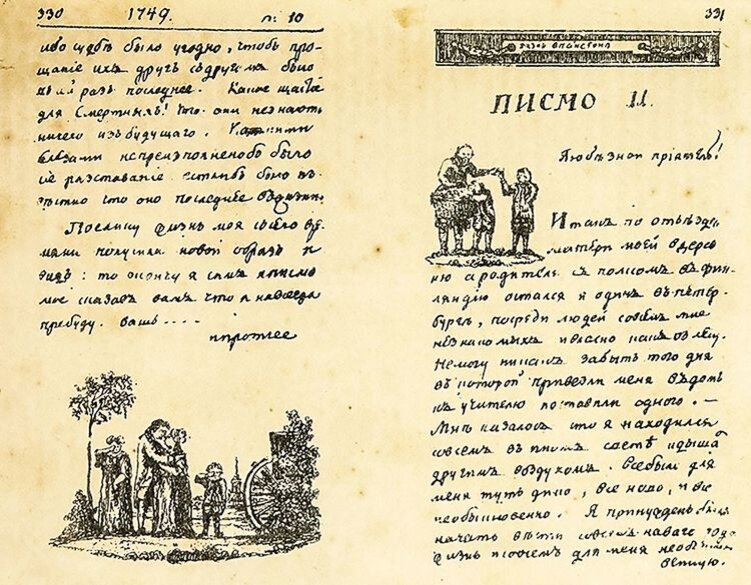 330 1749. п: 10
ибо судьбѣ было угодно, чтобъ про-
щаніе ихъ другъ съ другомъ было
въ сей разъ последнее. Какое щастіе
для Смертныхъ! что они не знаютъ
ничего изъ будущаго.
слезами непреизполненобъ было
ие разставаніе естлибъ было въ-
что оно последнее въ жизни.
Поелику жизнь моя съ сего вре-
мяни получила новой образъ и
видъ: то окончу я симъ письмо
мое сказавъ вамъ что я навсегда
пребуду. вашъ ....
и протчее
331
ПИСМО 11.
Любезной пріятель!
И такъ по отъѣзде
матери моей в дерев
ню а родитель съ полкомъ въ фин-
ляндію остался я одинъ въ петер-
бурге, посреди людей совсемъ мне
незнакомыхъ и власно какъ въ лесу.
Немогу никакъ забыть того дня
въ которой привезли меня въ домъ
къ учителю и оставили одного. —
Мнѣ казалось что я находился
совсемъ въ иномъ светѣ и дышалъ
другимъ воздухомъ. Все было для
меня тутъ дико, все ново, и все
необыкновенно. Я принужденъ былъ
начать вести совсемъ наваго рода
жизнь и совсемъ для меня необыкно
венную.